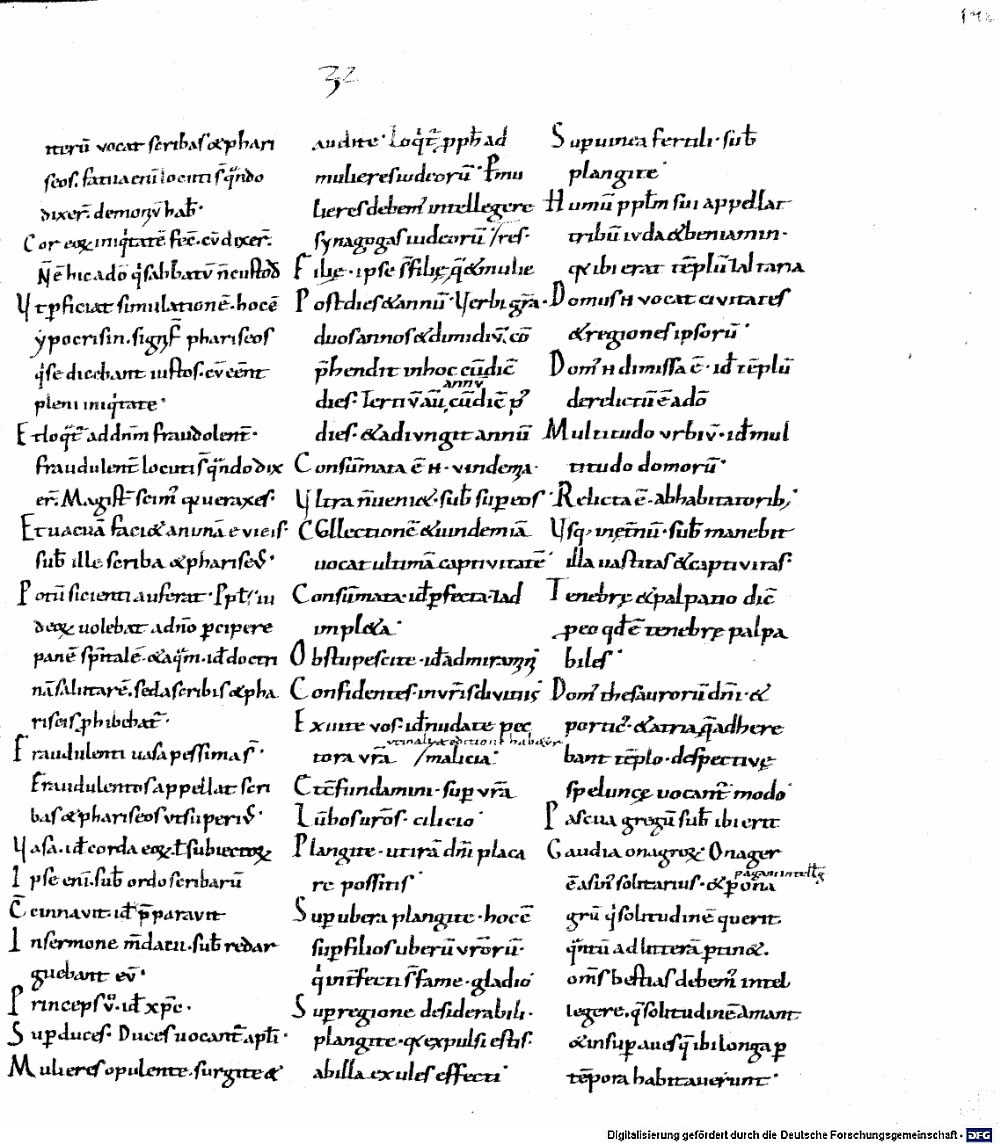 192
32
iterū vocat scribas & phari
seos. fatua enī locuti s̄ qn̄do
dixer̄. demonıv̄ hab̄.
Cor eoꝝ iniq̇tatē fec̄. cv̄ dixer̄.
N̄ ē hic a dō q̇ sabbatv̄ n̄ custod̄
Vt ꝑficiat simulationē. hoc ē
ẏpocrisin. signıf̄ phariseos
q̇ se dicebant iustos. cv̄ eēnt
pleni iniq̇tate.
Et loq̇t̄ ad dn̄m fraudolent̄.
fraudulent̄ locuti s̄ qn̄do dix
er̄. Magist̄ scim̄ qꝛ uerax es.
Et uacuā faci& animā e vieıs.
sub̄ ille scriba & phariseꝰ.
Potū sicienti auferat. Ppt̄ iu
deoꝝ uolebat a dn̄o ꝑcipere
panē spit̄alē. & aq̄m. id̄ doctri
nā salutarē. sed a scribis & pha
riseis ꝓhibebat̄.
Fraudulenti uasa pessima s̄.
Fraudulentos appellat scri
bas & phariseos vt supeриꝰ.
Vasa. id̄ corda eoꝝ. ł subiectoꝝ
Ipse enī. sub̄ ordo scribarū
C̄cinnavit. id̄ p̄paravit
In sermone m̄datii. sub̄ redar
guebant ev̄.
Princeps v̊. id̄ xp̄c.
Suꝑ duces. Duces uocant̄ apłi.
Mulieres opulente. surgite &
audite. Loq̇t̄ ꝓph̄ ad
mulieres iudeorū. P mu
lieres debem̄ intellegere
synagogas iudeorū /res.
Filię. ipse s̄ filię. q̄ & mulie
Post dies & annū. Verbi gr̄a.
duos annos & dimidiv̄. cō
p̄hendit in hoc cū dic̄
annv̄
dies. Terti v̄ aū, cū dic̄ p̄
dies. & adivngit annū
Consūmata ē н. vindem̄a.
Vltra n̄ ueni&. sub̄ suꝑ eos
Collectionē & uindemiā
uocat ultimā captivitatē
Consūmata. id̄ ꝑfecta. ł ad
impl&a.
Obstupescite. id̄ admiram̄
Confidentes. in vr̄is divitiis
Exuite vos. id̄ nudate pec
tora vr̄a /malicia.
Ct̄e fundamini. suꝑ vr̄a
Lūbos uros̄. cilicio
Plangite. ut irā dn̄i placa
re possitis
Suꝑ ubera plangite. hoc ē
suꝑ filios uberū vr̄orū.
q̇ intfecti s̄ fame. gladio
Suꝑ regione desiderabili.
plangite. qꝛ expulsi estis.
ab illa exules effecti
Suꝑ uinea fertili. sub̄
plangite
Humū ppł̄m sui appellat
tribū ivda & beniamin.
qꝛ ibi erat tēplū ł altaria
Domus н vocat civitates
& regiones ipsorū
Dom̄ н dimissa ē. id̄ tēplū
derelictū ē a dō
Multitudo vrbiv̄. id̄ mul
titudo domorū.
Relicta ē. ab habitatorib;
Vsq; in et̄nū. sub̄ manebit
illa uastitas & captivitas.
Tenebrę & palpatio dic̄
ꝓ eo qd̄ ē tenebrę palpa
biles
Dom̄ thesaurorū dn̄i. &
portic̄. & atria q̄ adhere
bant tēplo. despectivę
speluncę uocant̄ modo
Pascua gregū sub̄ ibi erit
Gaudia onagroꝝ. Onager
pagani intellg̅
ē asin̄ solitarius. & ꝑ ona
grū q̇ solitudinē querit.
q̄ntū ad litterā ꝑtin&.
om̄s bestias debem̄ intel
legere, q̄ solitudinē amant
& insuꝑ aues q̄ ibi longa ꝑ
tēpora habitauerunt.
Digitalisierung gefördert durch die Deutsche Forschungsgemeinschaft - DFG